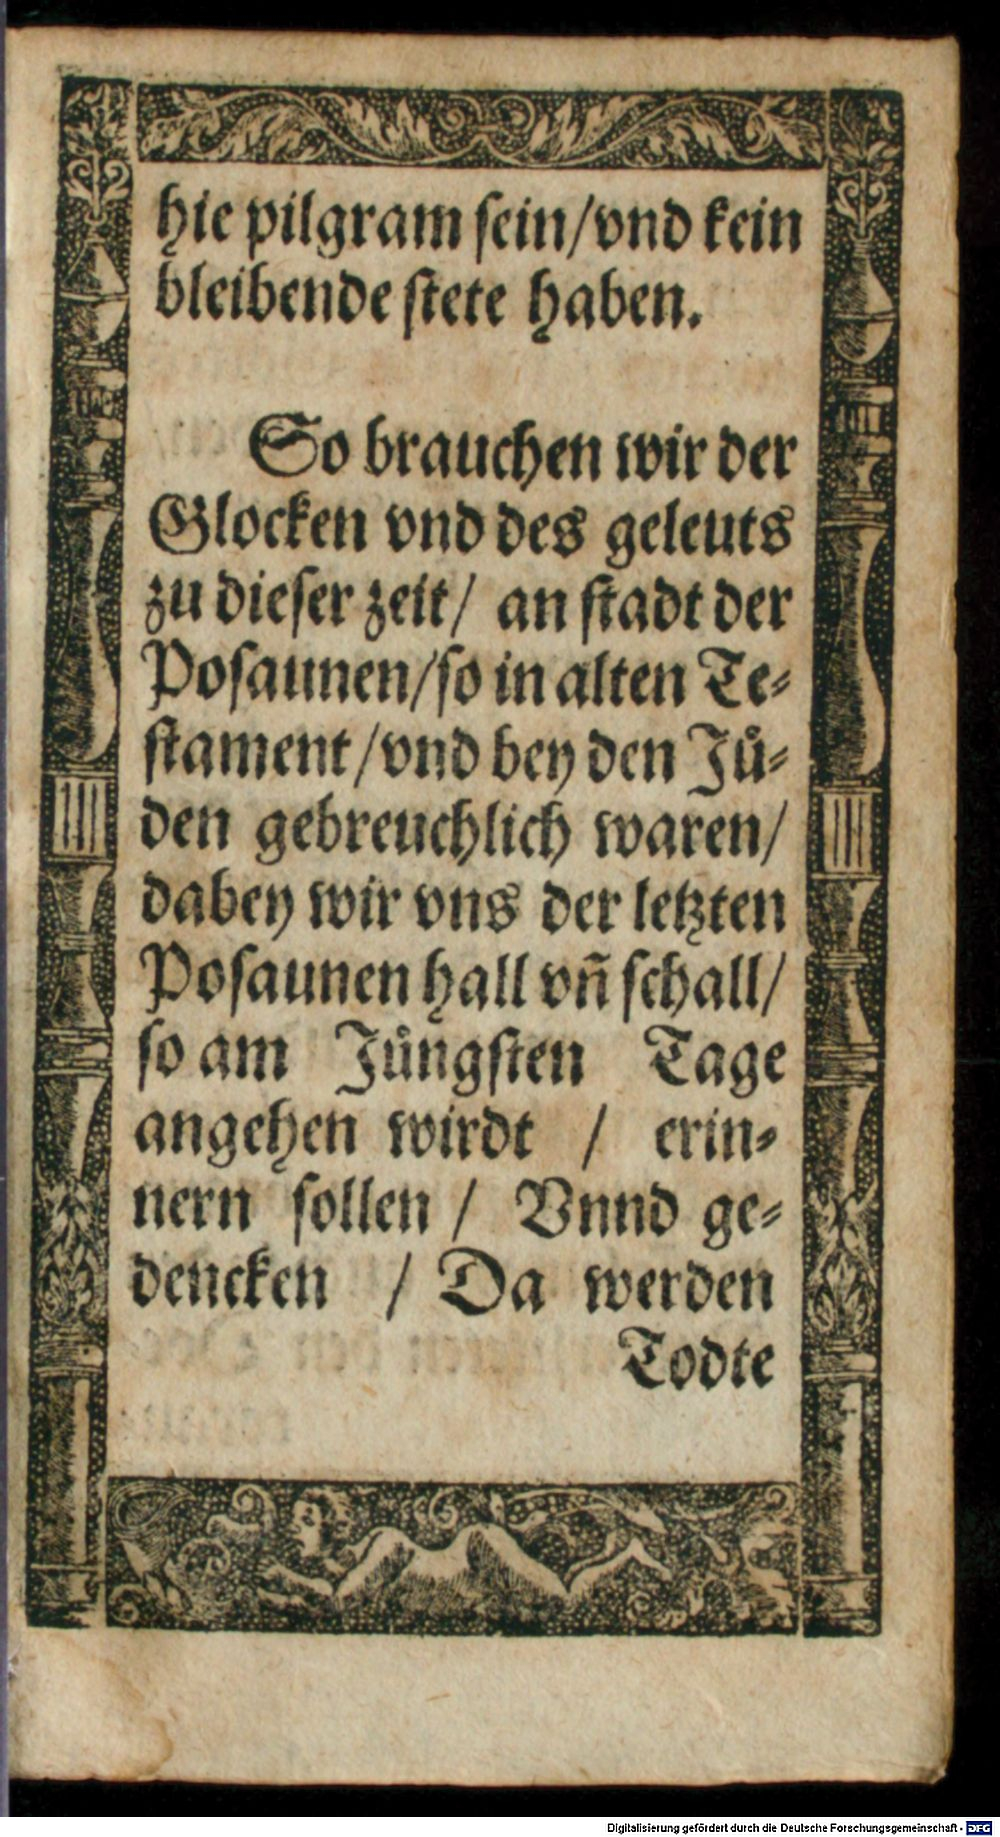 hie pilgram sein/vnd kein
bleibende stete haben.
So brauchen wir der
Glocken vnd des geleuts
zu dieser zeit/ an stadt der
Posaunen/so in alten Te-
stament/vnd bey den Juͤ-
den gebreuchlich waren/
dabey wir vns der letzten
Posaunen hall vñ schall/
so am Juͤngsten Tage
angehen wirdt / erin-
nern sollen / Vnnd ge-
dencken / Da werden
Todte
Digitalisierung gefördert durch die Deutsche Forschungsgemeinschaft - DFG